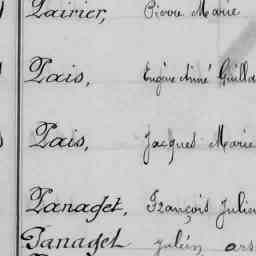 Pairier, Pierre Marie
Pais, Eugène Aimé Guilla
Pais, Jacques Marie
Panaget, François Julien
Panaget julien ars